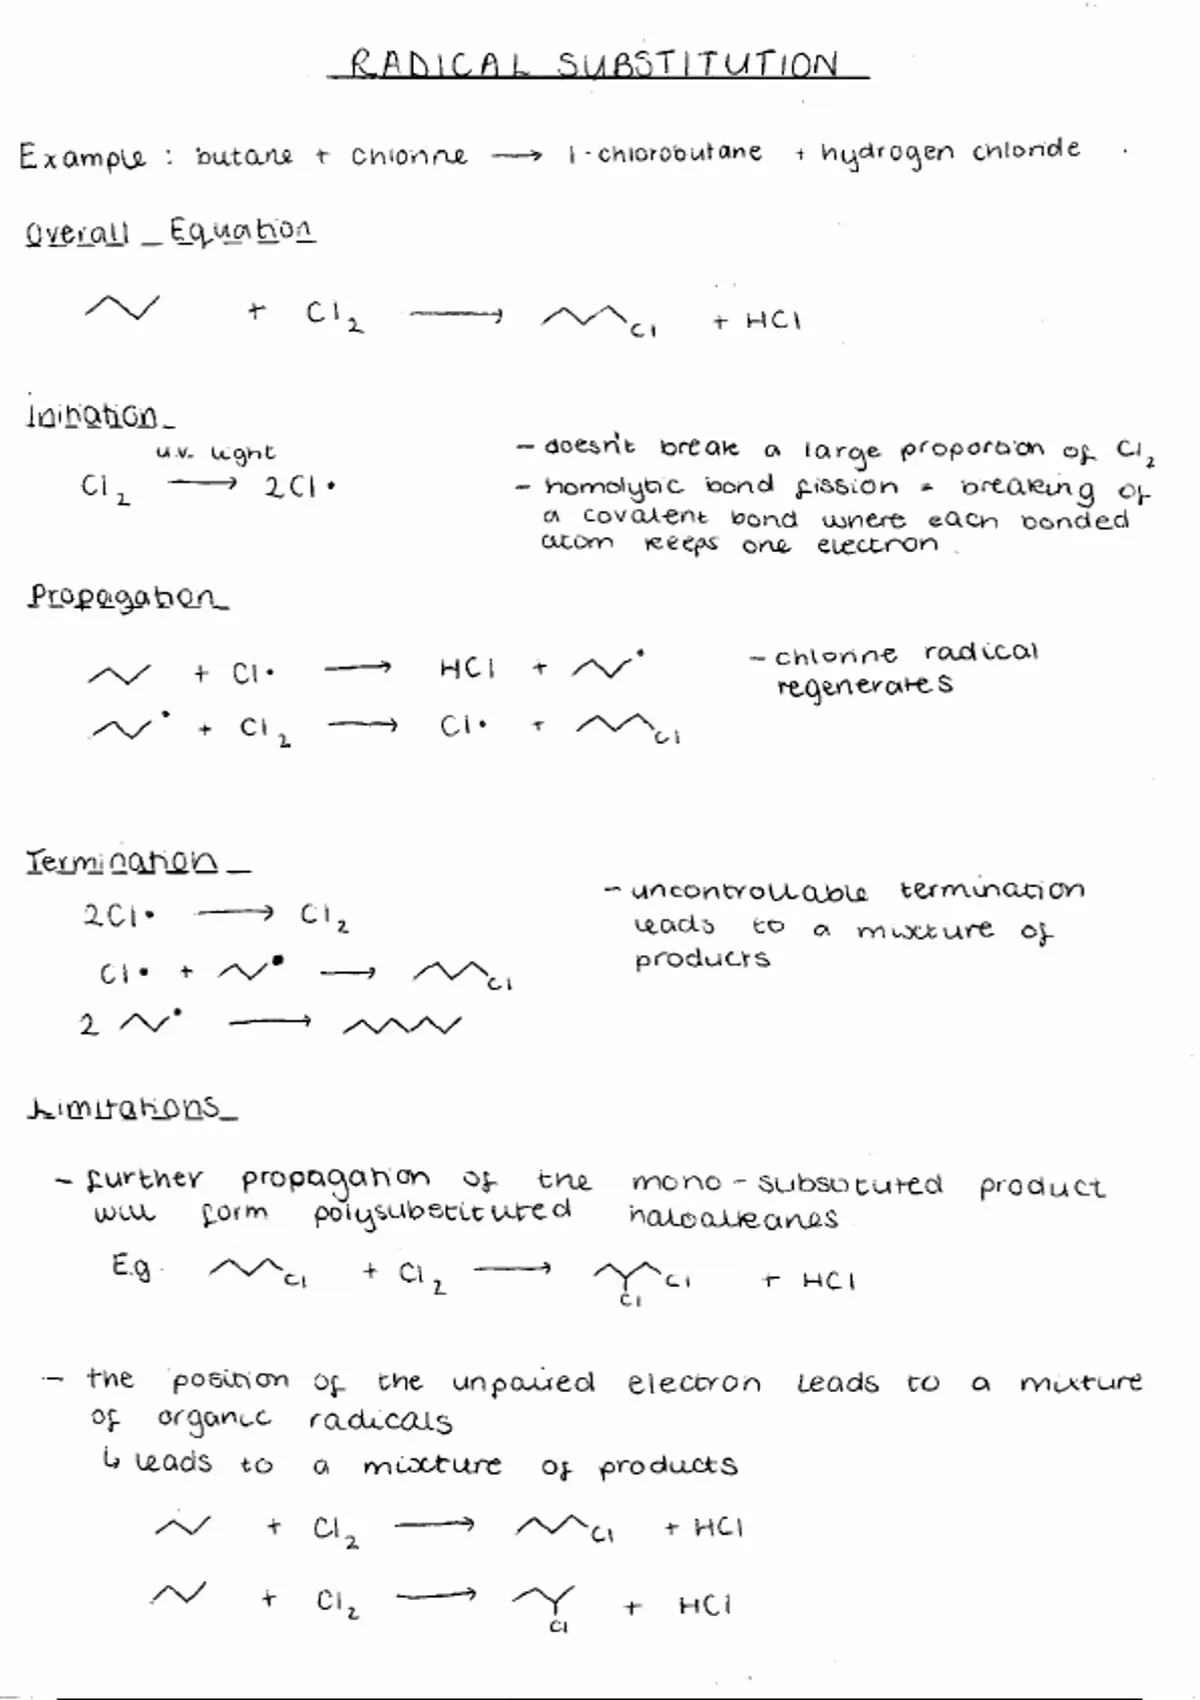 RADICAL SUBSTITUTION
Example : butane + chlorine → 1-chlorobutane + hydrogen chloride
Overall Equation
+ Cl₂ → Cl + HCl
Initiation
u.v. light
Cl₂ → 2Cl•
- doesn't break a large proportion of Cl₂
- homolytic bond fission = breaking of
a covalent bond where each bonded
atom keeps one electron.
Propagation
+ Cl• → HCl + •
- chlorine radical
regenerates
• + Cl₂ → Cl• + Cl
Termination
2Cl• → Cl₂
- uncontrollable termination
leads to a mixture of
products
Cl• + • → Cl
2 • →
Limitations
- further propagation of the mono-substituted product
will form polysubstituted haloalkanes
E.g. Cl + Cl₂ → Cl Cl + HCl
- the position of the unpaired electron leads to a mixture
of organic radicals
↳ leads to a mixture of products
+ Cl₂ → Cl + HCl
+ Cl₂ → Cl + HCl